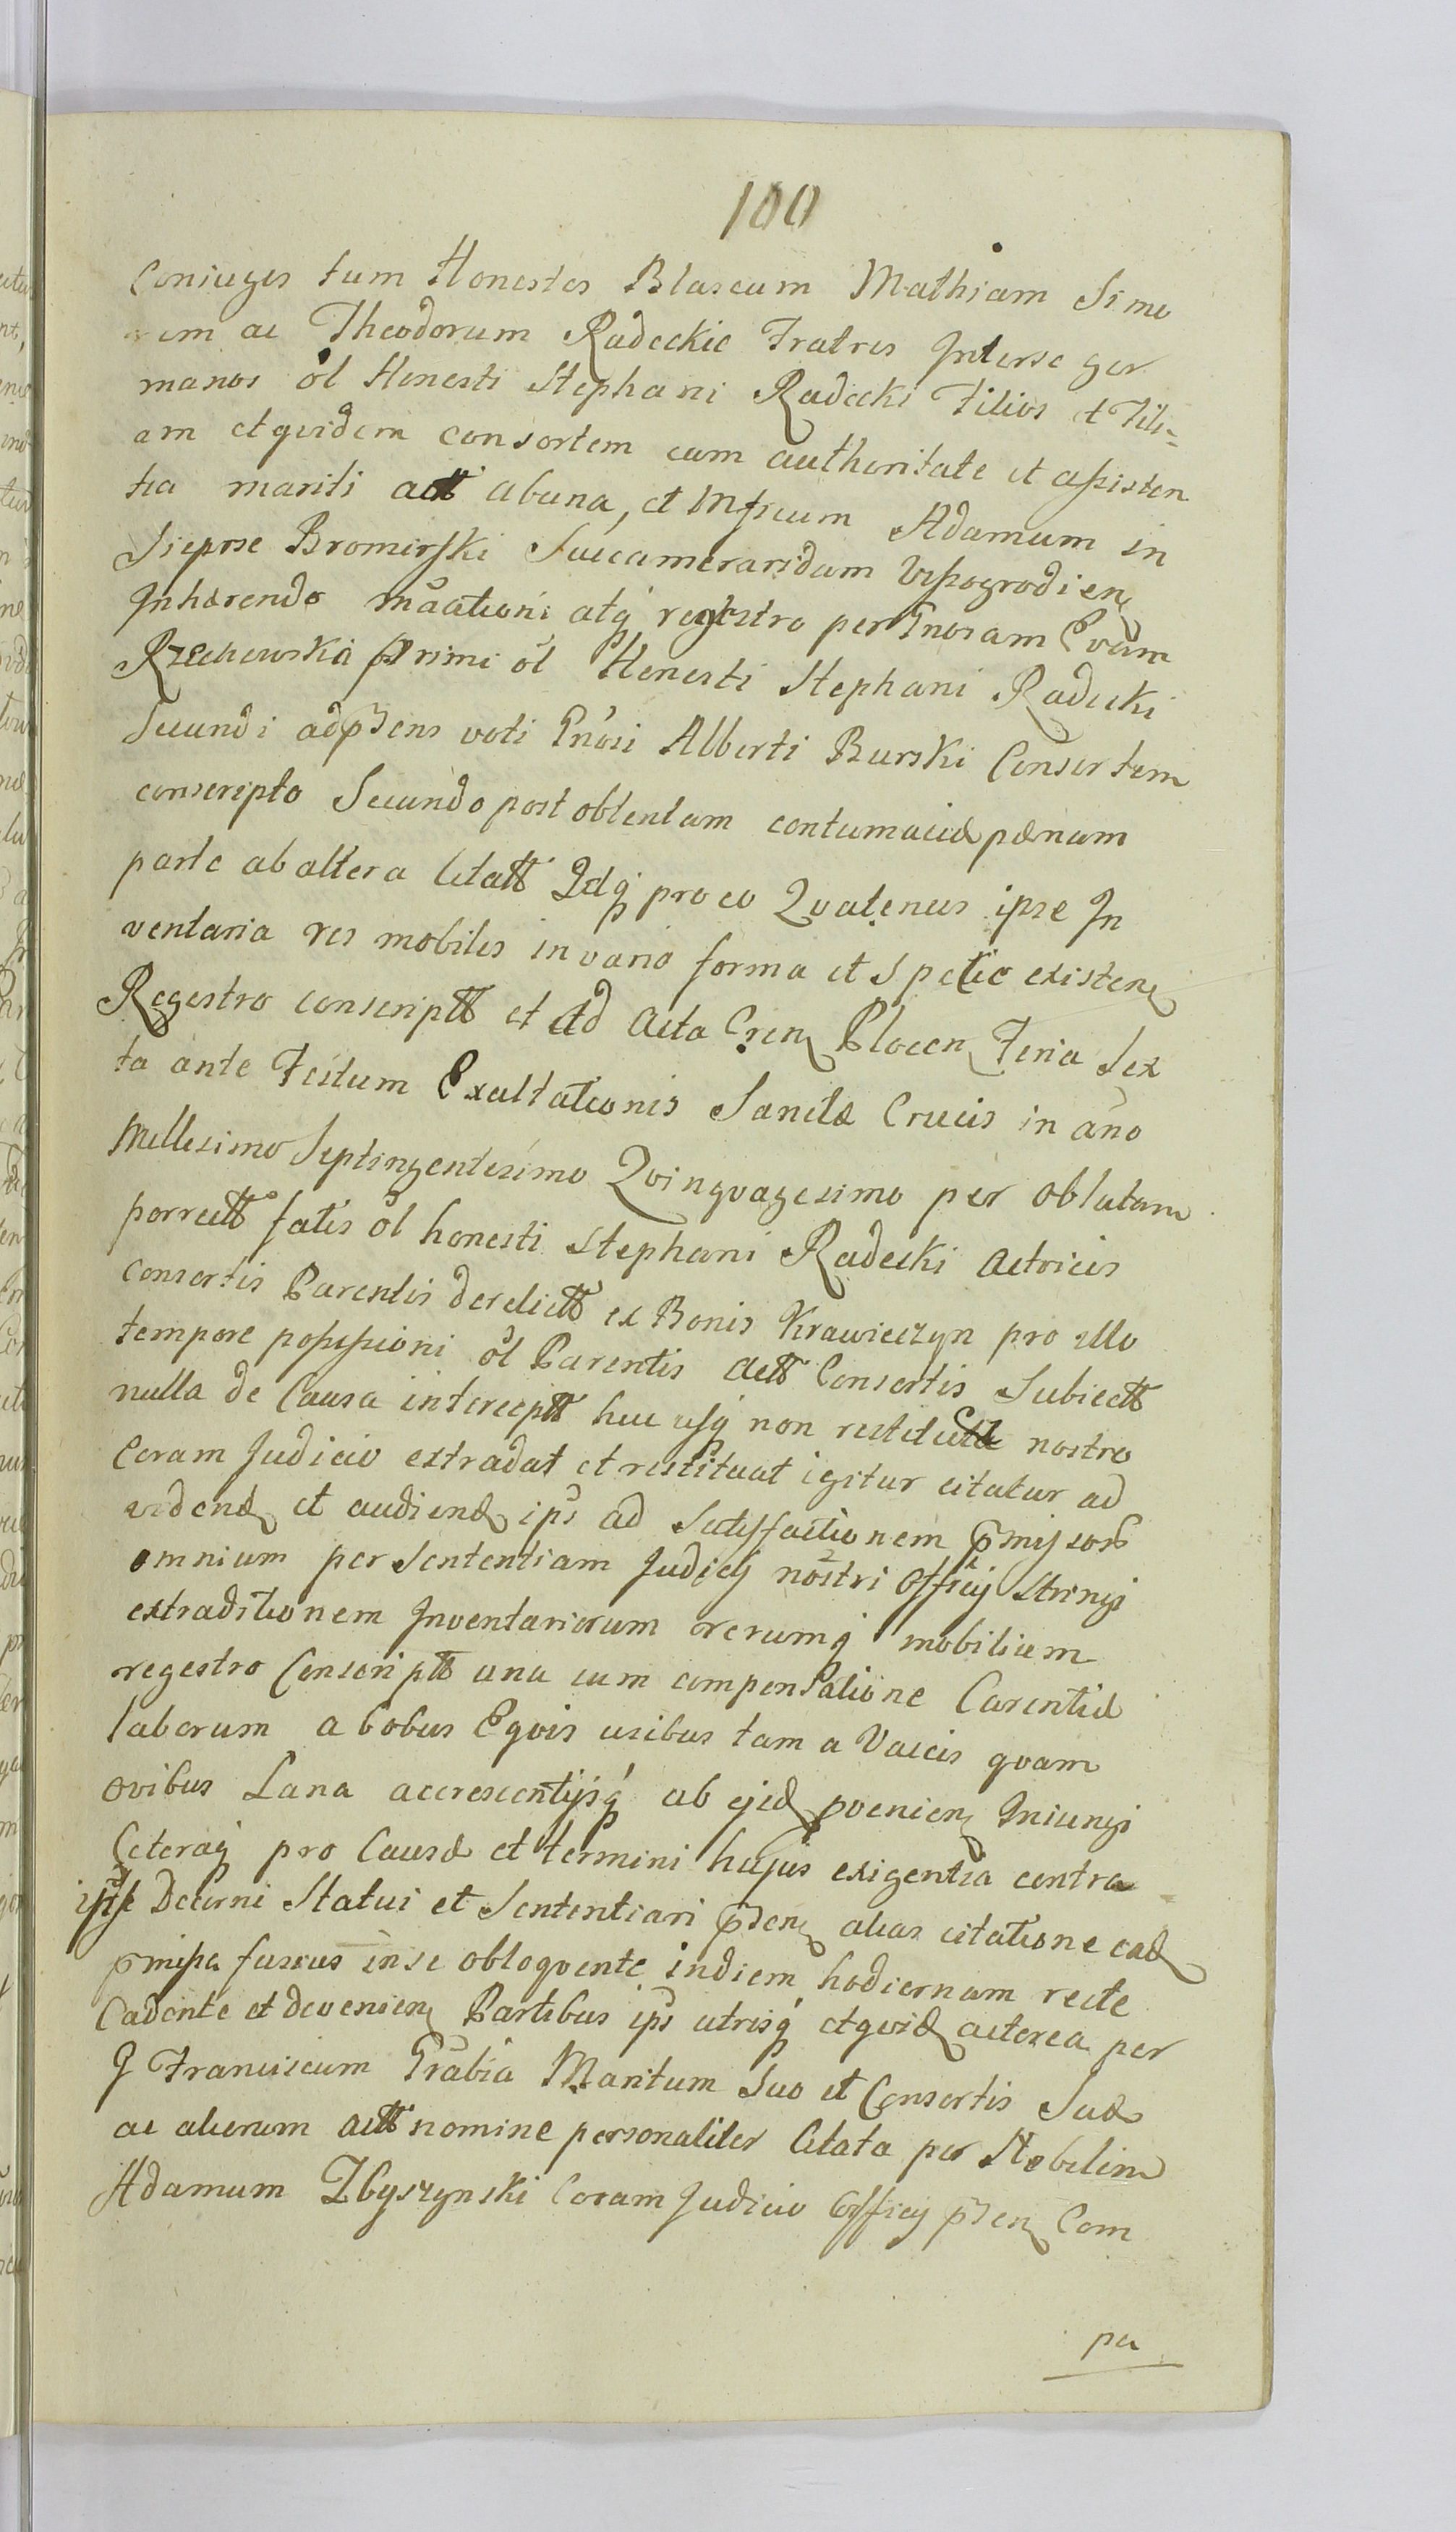 100
Coniuges tum Honestos Blaseum Mathiam Simo
nem ac Theodorum Radeckie Fratres Interse ger
manos ol Honesti Stephani Radecki Filios et Fili=
am etqvidem consortem cum authoritate et assisten
tia mariti actt abuna, et Mfscum Adamum in
Sieprse Bromirski Succameraridam Vissogrodien
Inhærendo mãationi atq registro per Gnosam Evam
Rzechowska primi ol Honesti Stephani Radecki
Secundi adpsens voti Gnosi Alberti Burski Consortem
conscripto Secundo post obtentam contumaciæ pænam
parte ab altera Citatt Idq pro eo Qvatenus ipse In
ventaria res mobiles in varia forma et Specie existen
Regestro conscriptt et Ad Acta Cren Plocen Feria Sex
ta ante Festum Exaltationis Sanctæ Crucis in año
Millesimo Septingentesimo Qvinqvagesimo per oblatam
porrectt fatis ol honesti Stephani Radecki Actricis
Consortis Parentis derelictt ex Bonis Krawieczyn pro illo
tempore possessioni ol Parentis Actt Consortis Subiectt
nulla de Causa interceptt huc usq non restituta nostro
Coram Judicio extradat et restituat igitur citatur ad
videnđ et audienđ ips ad Satisfactionem pmissorum
omnium per Sententiam Judicij nostri Officij Stringi
extraditionem Inventariorum rerumq mobilium
regestro Conscriptt una cum compensatione Carentiæ
laborum a bobus Eqvis usibus tam a Vaccis qvam
ovibus Lana accrescentijsq ab ejsd pvenien Iniungi
Ceteraq pro Causæ et termini hujus exigentia contra
ipse Decerni Statui et Sententiari psen alias citatione ead
pmissa fusius in se obloqvente indiem hodiernam recte
Cadente et devenien Partibus ips utrisq etqvid actorea per
G Franciscum Grabia Maritum Suo et Consortis Suæ
ac aliorum actt nomine personaliter Citata per Nobilem
Adamum Zbyszynski Coram Judicio Officij psen Com
pa